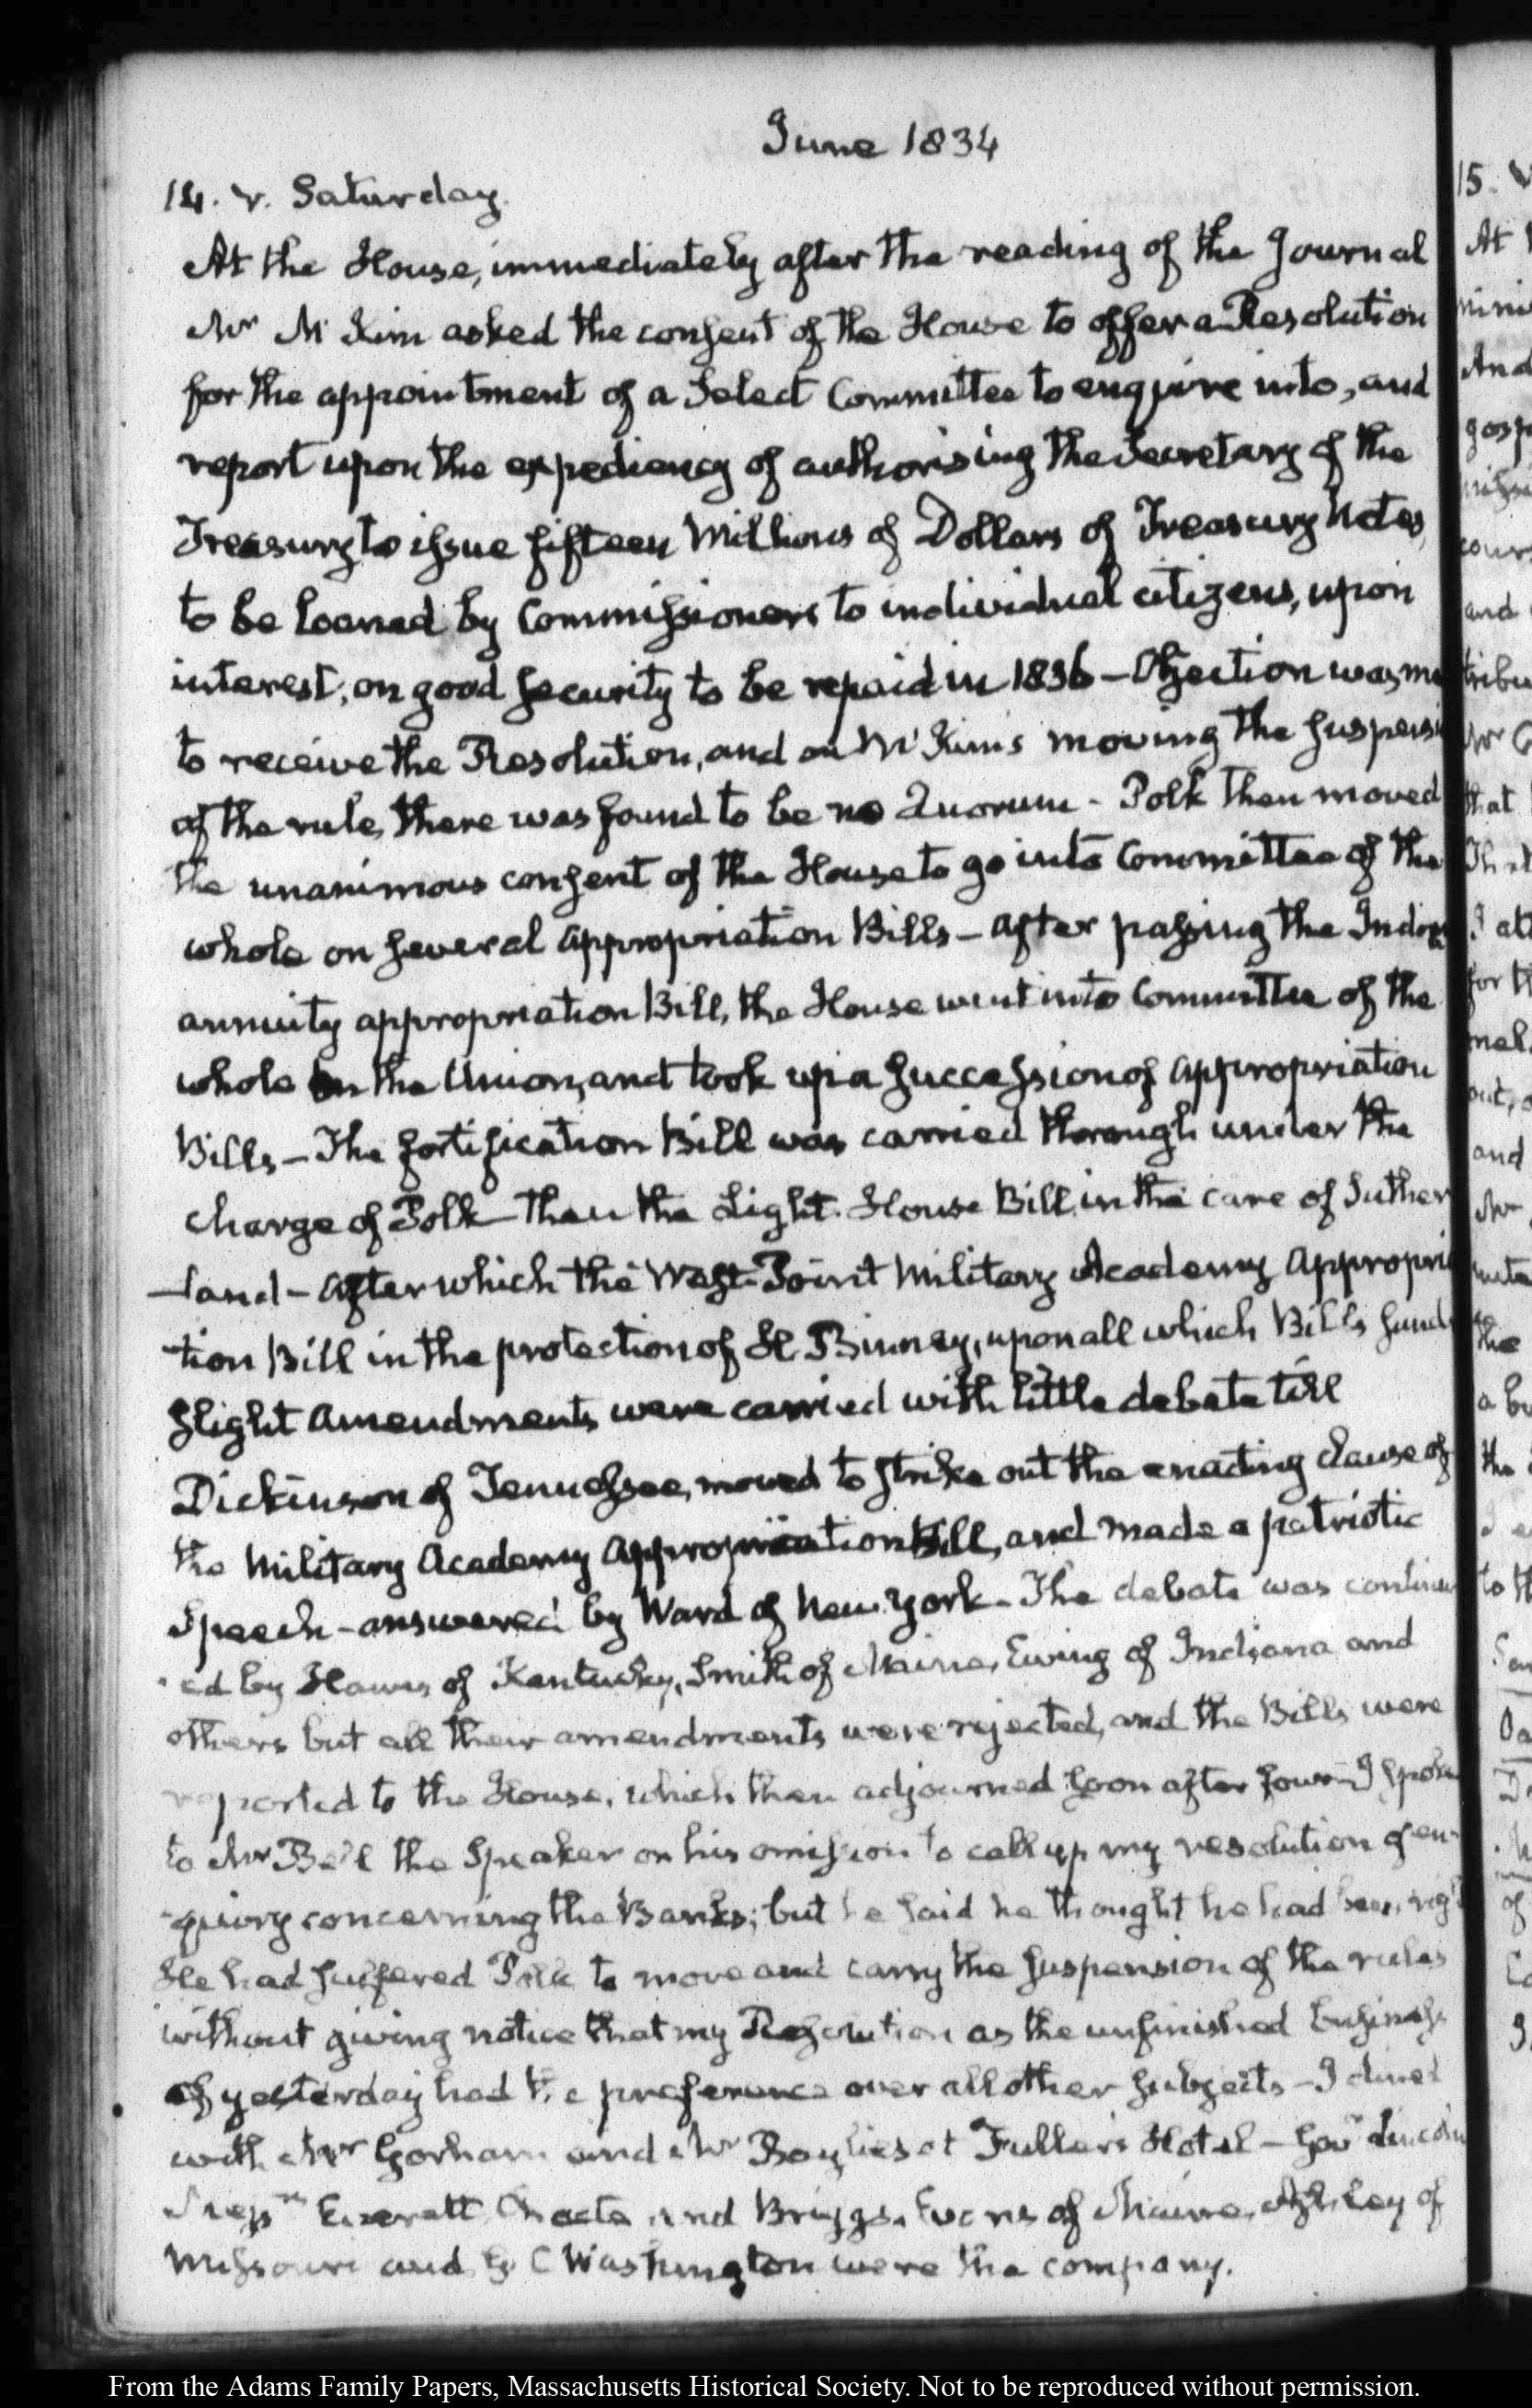 June 1834
14. V. Saturday.
At the House, immediately after the reading of the Journal
Mr McKim asked the consent of the House to offer a Resolution
for the appointment of a Select Committee to enquire into, and
report upon the expediency of authorising the Secretary of the
Treasury to issue fifteen Millions of Dollars of Treasury Notes,
to be loaned by Commissioners to individual citizens, upon
interest, on good security to be repaid in 1836 — Objection was
to receive the Resolution, and on McKim's moving the suspensi
of the rule, there was found to be no Quorum - Polk then moved
the unanimous consent of the House to go into Committee of the
whole on several appropriation Bills — After passing the Indian
annuity appropriation Bill, the House went into Committee of the
whole on the Union, and took up a succession of appropriation
Bills — The fortification Bill was carried through under the
charge of Polk — Then the Light-House Bill in the care of Suther
-land — After which the West-Point Military Academy Appropria
tion Bill in the protection of H. Binney, upon all which Bills
slight amendments were carried with little debate till
Dickinson of Tennessee, moved to strike out the enacting clause of
the Military Academy appropriation Bill, and made a patriotic
Speech — answered by Ward of New-York — The debate was continu
ed by Hawes of Kentucky, Smith of Maine, Ewing of Indiana and
others but all their amendments were rejected, and the Bills were
reported to the House, which then adjourned soon after four — I spoke
to Mr Bell the Speaker on his omission to call up my resolution of en-
-quiry concerning the Banks; but he said he thought he had been
He had suffered Polk to move and carry the suspension of the rules
without giving notice that my Resolution as the unfinished business
of yesterday had the preference over all other subjects — I dined
with Mr Gorham and Mr Baylies at Fuller's Hotel — Govr Lincoln
Everett, Choate and Briggs, Evans of Maine, Ashley of
Missouri and G. C Washington were the company.
15. V
At
And
and
that
for th
out,
and
Mr
the
a
the
to th
of
From the Adams Family Papers, Massachusetts Historical Society. Not to be reproduced without permission.